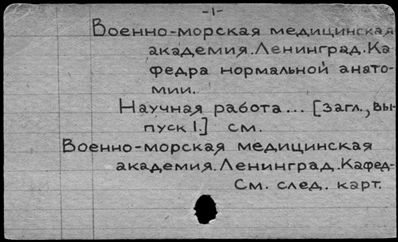 -1-
Военно-морская медицинская
академия. Ленинград. Ка
федра нормальной анато-
мии.
Научная работа... [Загл., вы-
пуск 1.] см.
Военно-морская медицинская
академия. Ленинград. Кафед-
См. след. карт.